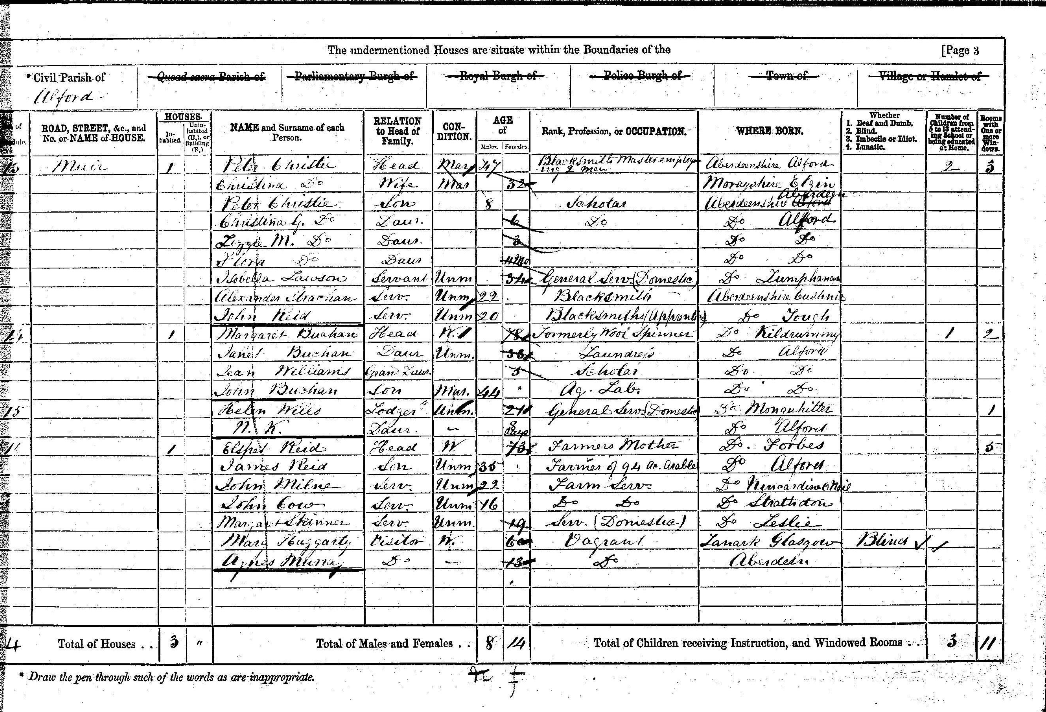 The undermentioned Houses are situate within the Boundaries of the [Page 3
*Civil Parish of Quoad sacra Parish of Parliamentary Burgh of Royal Burgh of Police Burgh of Town of Village or Hamlet of
Alford
ROAD, STREET, &c., and No. or NAME of HOUSE. HOUSES. Inhabited NAME and Surname of each Person. RELATION to Head of Family. CONDITION. AGE of Males Females Rank, Profession, or OCCUPATION. WHERE BORN. Whether 1. Deaf and Dumb. 2. Blind. 3. Imbecile or Idiot. 4. Lunatic. Number of Children from 5 to 13 attending School or being educated at Home. Rooms with One or more Windows.
Muir 1 Peter Christie Head Mar 47 Blacksmith Master employing 2 men Aberdeenshire Alford 2 3
Christina Do Wife Mar 32 Morayshire Elgin
Peter Christie Son 8 Scholar Aberdeenshire Aberdeen
Christina G. Do Daur. 6 Do Do Alford
Lizzie M. Do Daur. 3 Do Do
Flora Do Daur Do Do
Isobella Lawson Servant Unm General Serv (Domestic) Do Lumphanan
Alexander Strachan Serv. Unm 22 Blacksmith Aberdeenshire Cushnie
John Reid Serv. Unm 20 Blacksmiths (Apprentice) Do Tough
14 1 Margaret Buchan Head Wd Formerly Wool Spinner Do Kildrummy 1 2
Janet Buchan Daur Unm. 38 Laundress Do Alford
Jean Williams Gran Daur 5 Scholar Do Do
John Buchan Son Mar. 44 Ag. Lab. Do Do
15 Helen Wills Lodger Unm. 21 General Serv (Domestic) Do Monquhitter 1
N. K. Daur. — Days Do Alford
1 Elspet Reid Head W 73 Farmers Mother Do. Forbes 5
James Reid Son Unm 35 Farmer of 94 ac. Arable Do Alford
John Milne Serv. Unm 22 Farm Serv. Do
John Cow Serv. Unm 16 Do Do Do Strathdon
Margaret Skinner Serv. Unm. 19 Serv. (Domestic) Do Leslie
Mary Haggarty Visitor W. Vagrant Lanark Glasgow Blind
Agnes Murray Do — 13 Do Aberdeen
4 Total of Houses . . 3 " Total of Males and Females . . 8 14 Total of Children receiving Instruction, and Windowed Rooms . . 3 11
* Draw the pen through such of the words as are inappropriate.